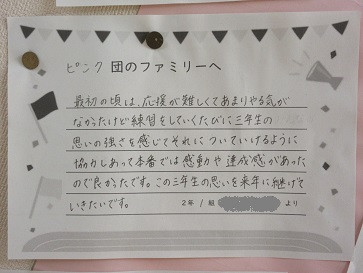 ピンク 団のファミリーへ
最初の頃は、応援が難しくてあまりやる気が
なかったけど練習をしていくたびに三年生の
思いの強さを感じてそれについていけるように
協力しあって本番では感動や達成感があった
ので良かったです。この三年生の思いを来年に継げて
いきたいです。 2年 1組 より